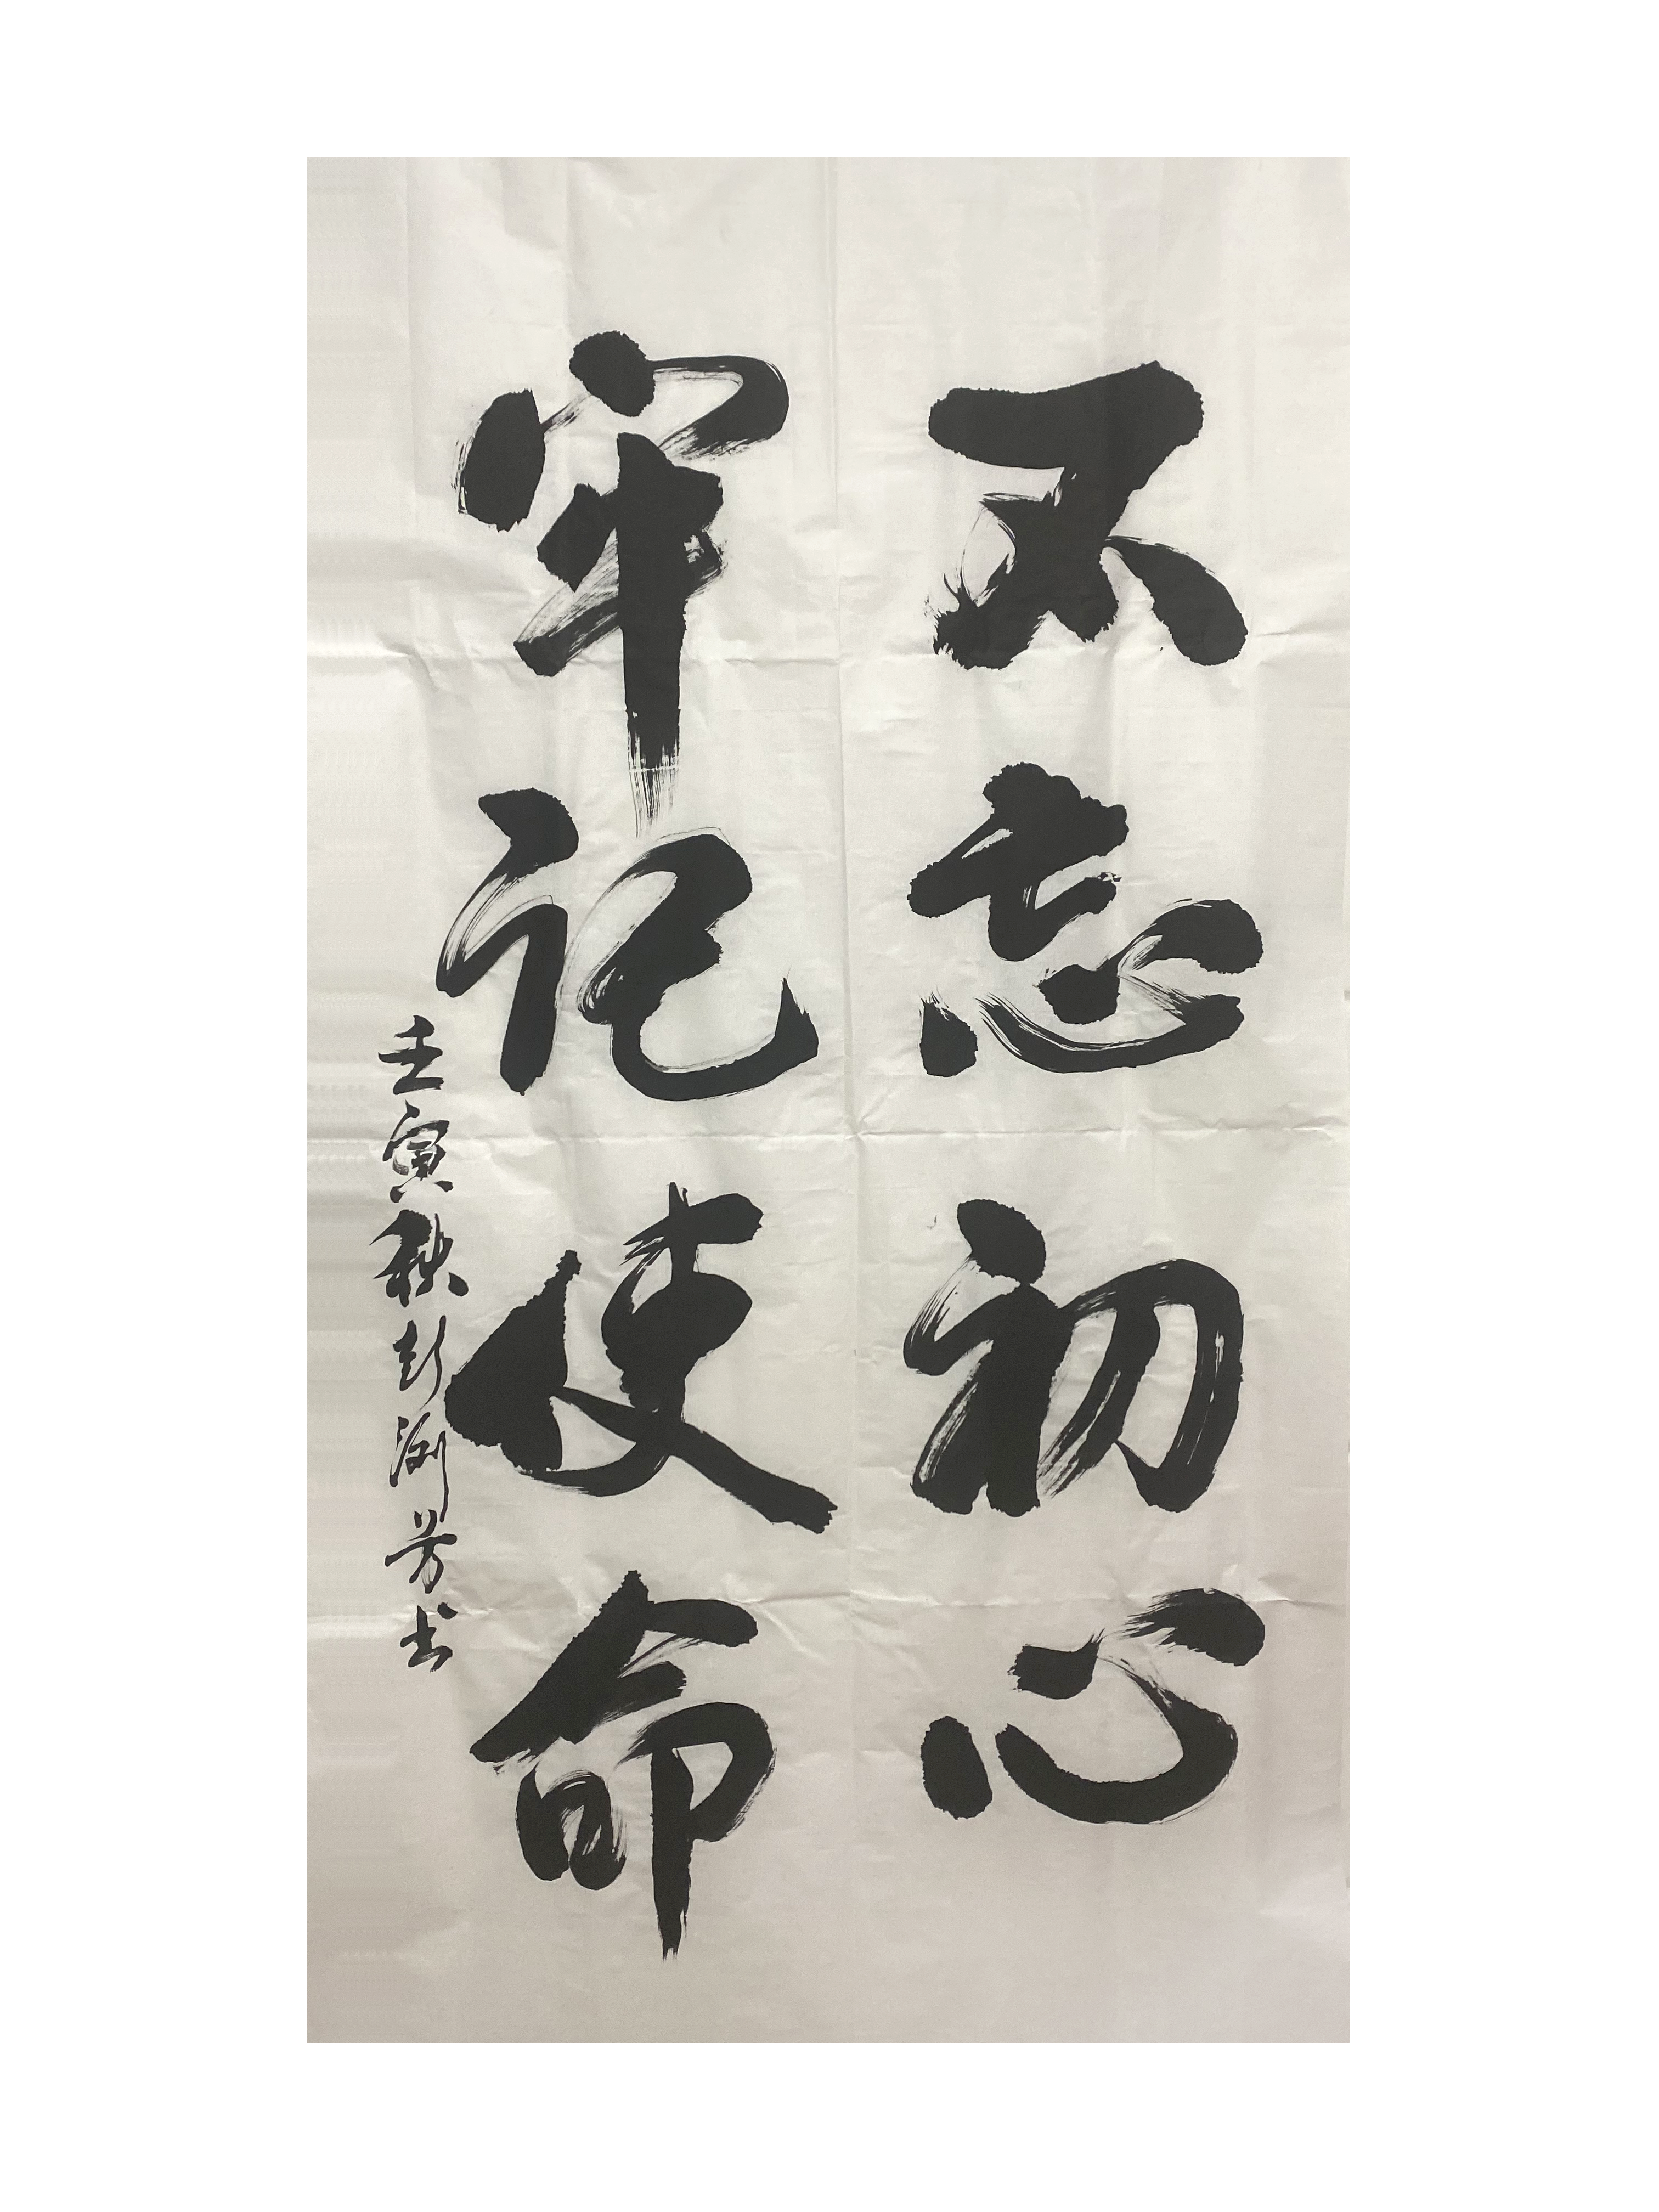 不忘初心
牢记使命
壬寅秋彭澍芳书